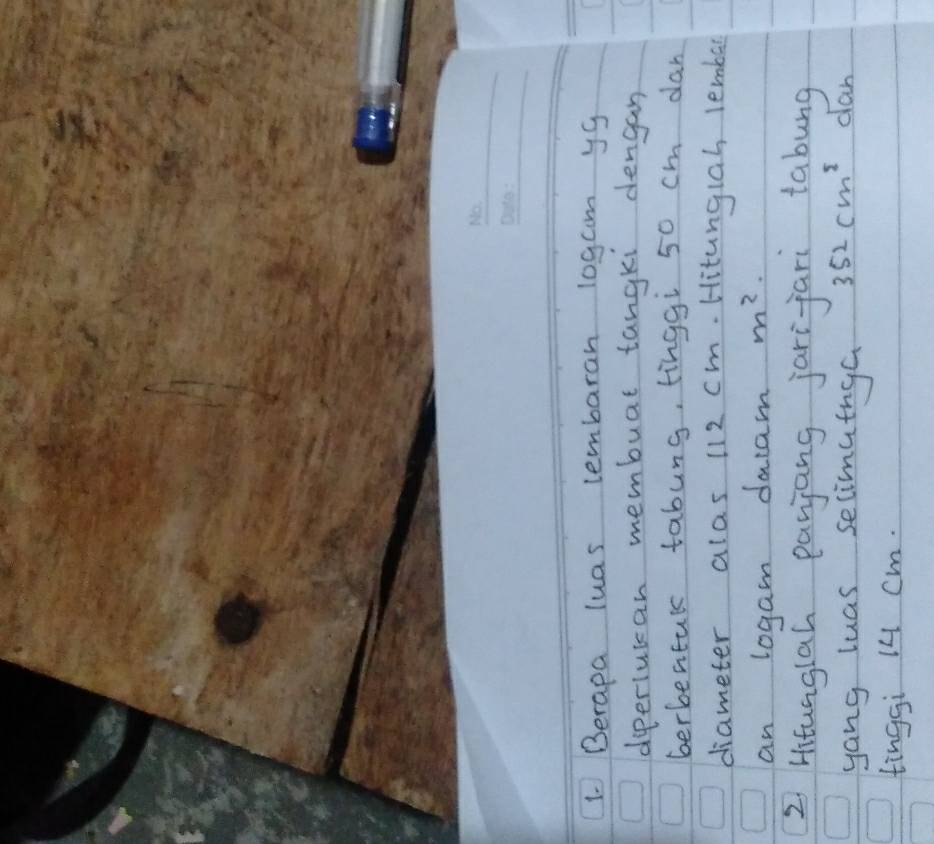 No.
Date:
1. Berapa luas lembaran logam yg
diperlukan membuat tangki dengan
berbentuk tabung, tinggi 50 cm dan
diameter alas 112 cm. Hitunglah lembar
an logam dalam m².
2. Hitunglah panjang jari-jari tabung
yang luas selimutnya 352 cm³ dan
tinggi 14 cm.